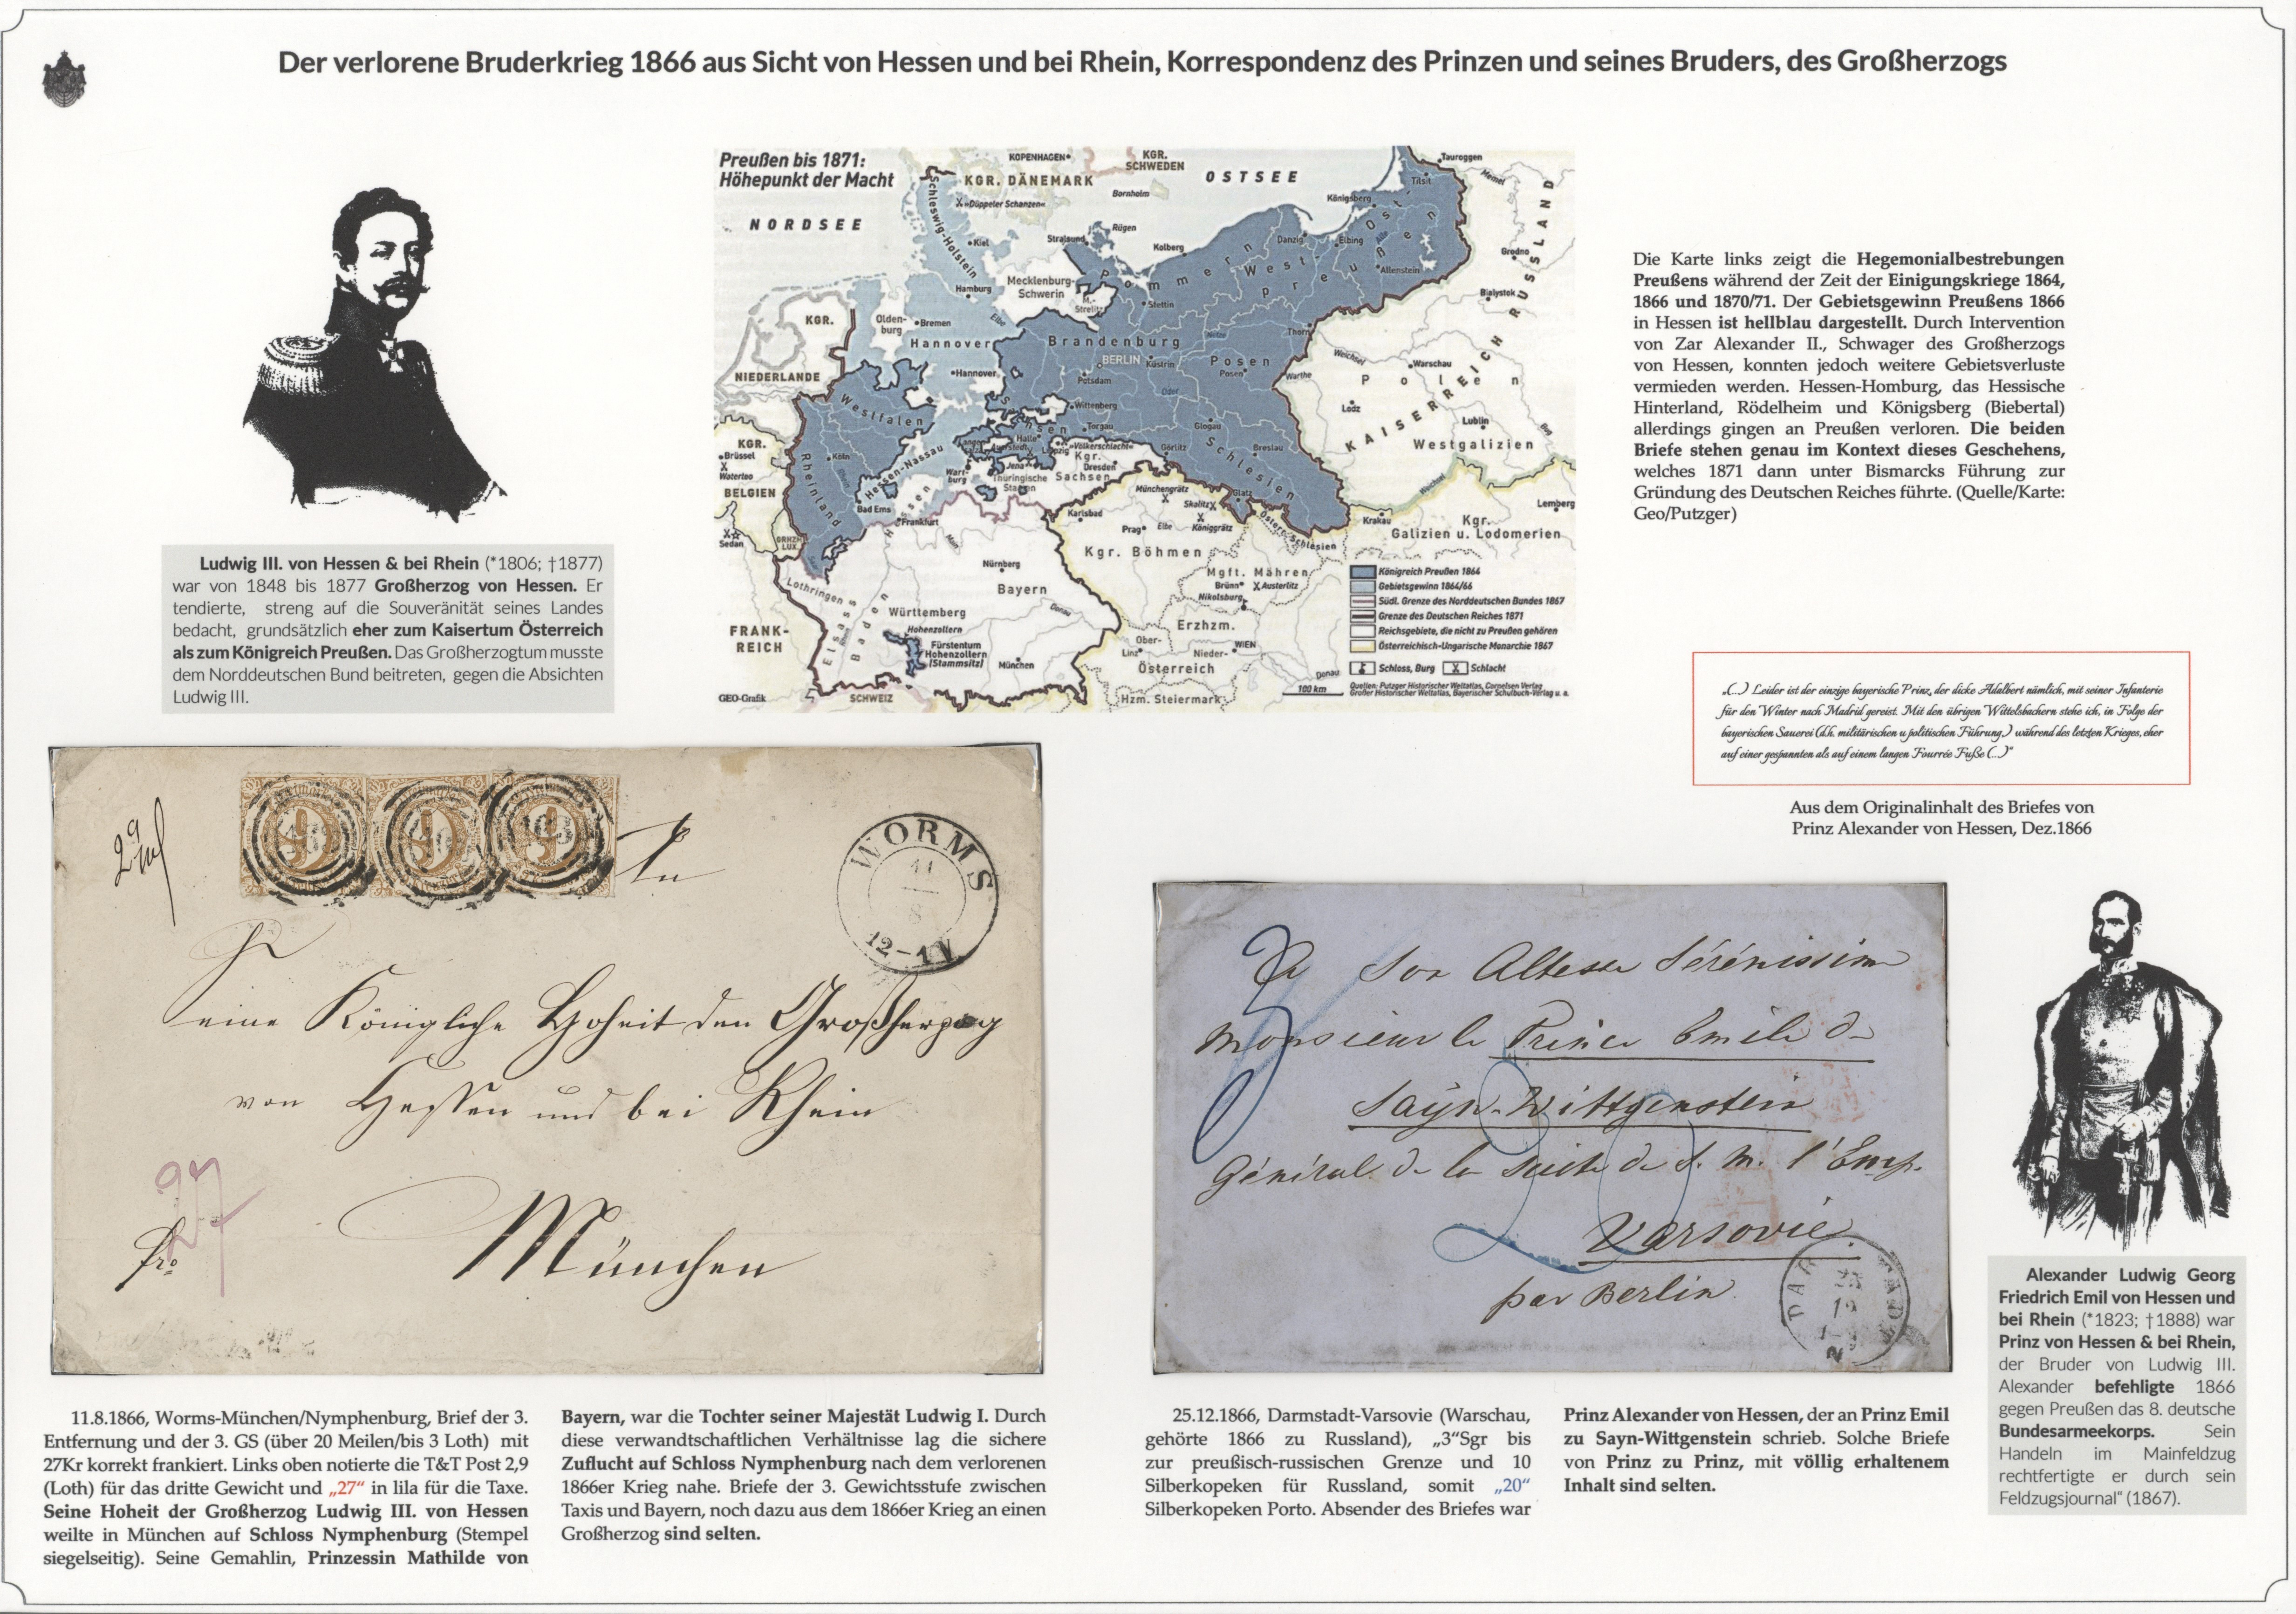 Der verlorene Bruderkrieg 1866 aus Sicht von Hessen und bei Rhein, Korrespondenz des Prinzen und seines Bruders, des Großherzogs
Preußen bis 1871:
Höhepunkt der Macht
NORDSEE
OSTSEE
KOPENHAGEN
KGR. SCHWEDEN
KGR. DÄNEMARK
»Düppeler Schanzen«
Bornholm
Schleswig-Holstein
Kiel
Rügen
Stralsund
Kolberg
Danzig
Elbing
Königsberg
Tilsit
Tauroggen
Memel
Grodno
Allenstein
Alle
Ostpreußen
Westpreußen
Pommern
Mecklenburg-
Schwerin
M.-
Strelitz
Stettin
Hamburg
Elbe
Bialystok
KAISERREICH RUSSLAND
KGR.
NIEDERLANDE
Olden-
burg
Bremen
Hannover
Hannover
Brandenburg
BERLIN
Küstrin
Potsdam
Posen
Posen
Thorn
Netze
Warthe
Weichsel
Warschau
Polen
Oder
Lodz
Lublin
Bug
Westgalizien
Westfalen
Wittenberg
Torgau
Sachsen
Halle
»Völkerschlacht«
Leipzig
Görlitz
Glogau
Schlesien
Breslau
KGR.
Brüssel
Waterloo
BELGIEN
Köln
Rhein
Rheinland
Hessen-Nassau
Wart-
burg
Jena
Auerstedt
Thüringische
Staaten
Kgr.
Dresden
Sachsen
Hessen
Bad Ems
Frankfurt
Main
Sedan
GRHZM.
LUX.
Münchengrätz
Skalitz
Königgrätz
Glatz
Karlsbad
Prag
Elbe
Kgr. Böhmen
Österr.-Schlesien
Krakau
Weichsel
Lemberg
Kgr.
Galizien u. Lodomerien
Nürnberg
Bayern
Lothringen
Elsass
Baden
Württemberg
Hohenzollern
Fürstentum
Hohenzollern
(Stammsitz)
München
Donau
Mgft. Mähren
Brünn
Austerlitz
Nikolsburg
Erzhzm.
Ober-
Linz
Nieder-
WIEN
Österreich
Donau
Hzm. Steiermark
FRANK-
REICH
SCHWEIZ
GEO-Grafik
Königreich Preußen 1864
Gebietsgewinn 1864/66
Südl. Grenze des Norddeutschen Bundes 1867
Grenze des Deutschen Reiches 1871
Reichsgebiete, die nicht zu Preußen gehören
Österreichisch-Ungarische Monarchie 1867
Schloss, Burg
Schlacht
100 km
Quellen: Putzger Historischer Weltatlas, Cornelsen Verlag
Großer Historischer Weltatlas, Bayerischer Schulbuch-Verlag u. a.
Die Karte links zeigt die Hegemonialbestrebungen
Preußens während der Zeit der Einigungskriege 1864,
1866 und 1870/71. Der Gebietsgewinn Preußens 1866
in Hessen ist hellblau dargestellt. Durch Intervention
von Zar Alexander II., Schwager des Großherzogs
von Hessen, konnten jedoch weitere Gebietsverluste
vermieden werden. Hessen-Homburg, das Hessische
Hinterland, Rödelheim und Königsberg (Biebertal)
allerdings gingen an Preußen verloren. Die beiden
Briefe stehen genau im Kontext dieses Geschehens,
welches 1871 dann unter Bismarcks Führung zur
Gründung des Deutschen Reiches führte. (Quelle/Karte:
Geo/Putzger)
Ludwig III. von Hessen & bei Rhein (*1806; †1877)
war von 1848 bis 1877 Großherzog von Hessen. Er
tendierte, streng auf die Souveränität seines Landes
bedacht, grundsätzlich eher zum Kaisertum Österreich
als zum Königreich Preußen. Das Großherzogtum musste
dem Norddeutschen Bund beitreten, gegen die Absichten
Ludwig III.
„(...) Leider ist der einzige bayerische Prinz, der dicke Adalbert nämlich, mit seiner Infanterie
für den Winter nach Madrid gereist. Mit den übrigen Wittelsbachern stehe ich, in Folge der
bayerischen Sauerei (d.h. militärischen u politischen Führung,) während des letzten Krieges, eher
auf einer gespannten als auf einem langen Fourrée Fuße (...)“
Aus dem Originalinhalt des Briefes von
Prinz Alexander von Hessen, Dez.1866
9
WORMS
11
8
12-1 N
An
Seine Königliche Hoheit den Großherzog
von Hessen und bei Rhein
27
fro
München
A Son Altesse Sérénissime
Monsieur le Prince Emile de
Sayn-Wittgenstein
Général de la Suite de S. M. l'Emp.
Varsovie
par Berlin
3
20
Alexander Ludwig Georg
Friedrich Emil von Hessen und
bei Rhein (*1823; †1888) war
Prinz von Hessen & bei Rhein,
der Bruder von Ludwig III.
Alexander befehligte 1866
gegen Preußen das 8. deutsche
Bundesarmeekorps. Sein
Handeln im Mainfeldzug
rechtfertigte er durch sein
Feldzugsjournal“ (1867).
11.8.1866, Worms-München/Nymphenburg, Brief der 3.
Entfernung und der 3. GS (über 20 Meilen/bis 3 Loth) mit
27Kr korrekt frankiert. Links oben notierte die T&T Post 2,9
(Loth) für das dritte Gewicht und „27“ in lila für die Taxe.
Seine Hoheit der Großherzog Ludwig III. von Hessen
weilte in München auf Schloss Nymphenburg (Stempel
siegelseitig). Seine Gemahlin, Prinzessin Mathilde von
Bayern, war die Tochter seiner Majestät Ludwig I. Durch
diese verwandtschaftlichen Verhältnisse lag die sichere
Zuflucht auf Schloss Nymphenburg nach dem verlorenen
1866er Krieg nahe. Briefe der 3. Gewichtsstufe zwischen
Taxis und Bayern, noch dazu aus dem 1866er Krieg an einen
Großherzog sind selten.
25.12.1866, Darmstadt-Varsovie (Warschau,
gehörte 1866 zu Russland), „3“Sgr bis
zur preußisch-russischen Grenze und 10
Silberkopeken für Russland, somit „20“
Silberkopeken Porto. Absender des Briefes war
Prinz Alexander von Hessen, der an Prinz Emil
zu Sayn-Wittgenstein schrieb. Solche Briefe
von Prinz zu Prinz, mit völlig erhaltenem
Inhalt sind selten.